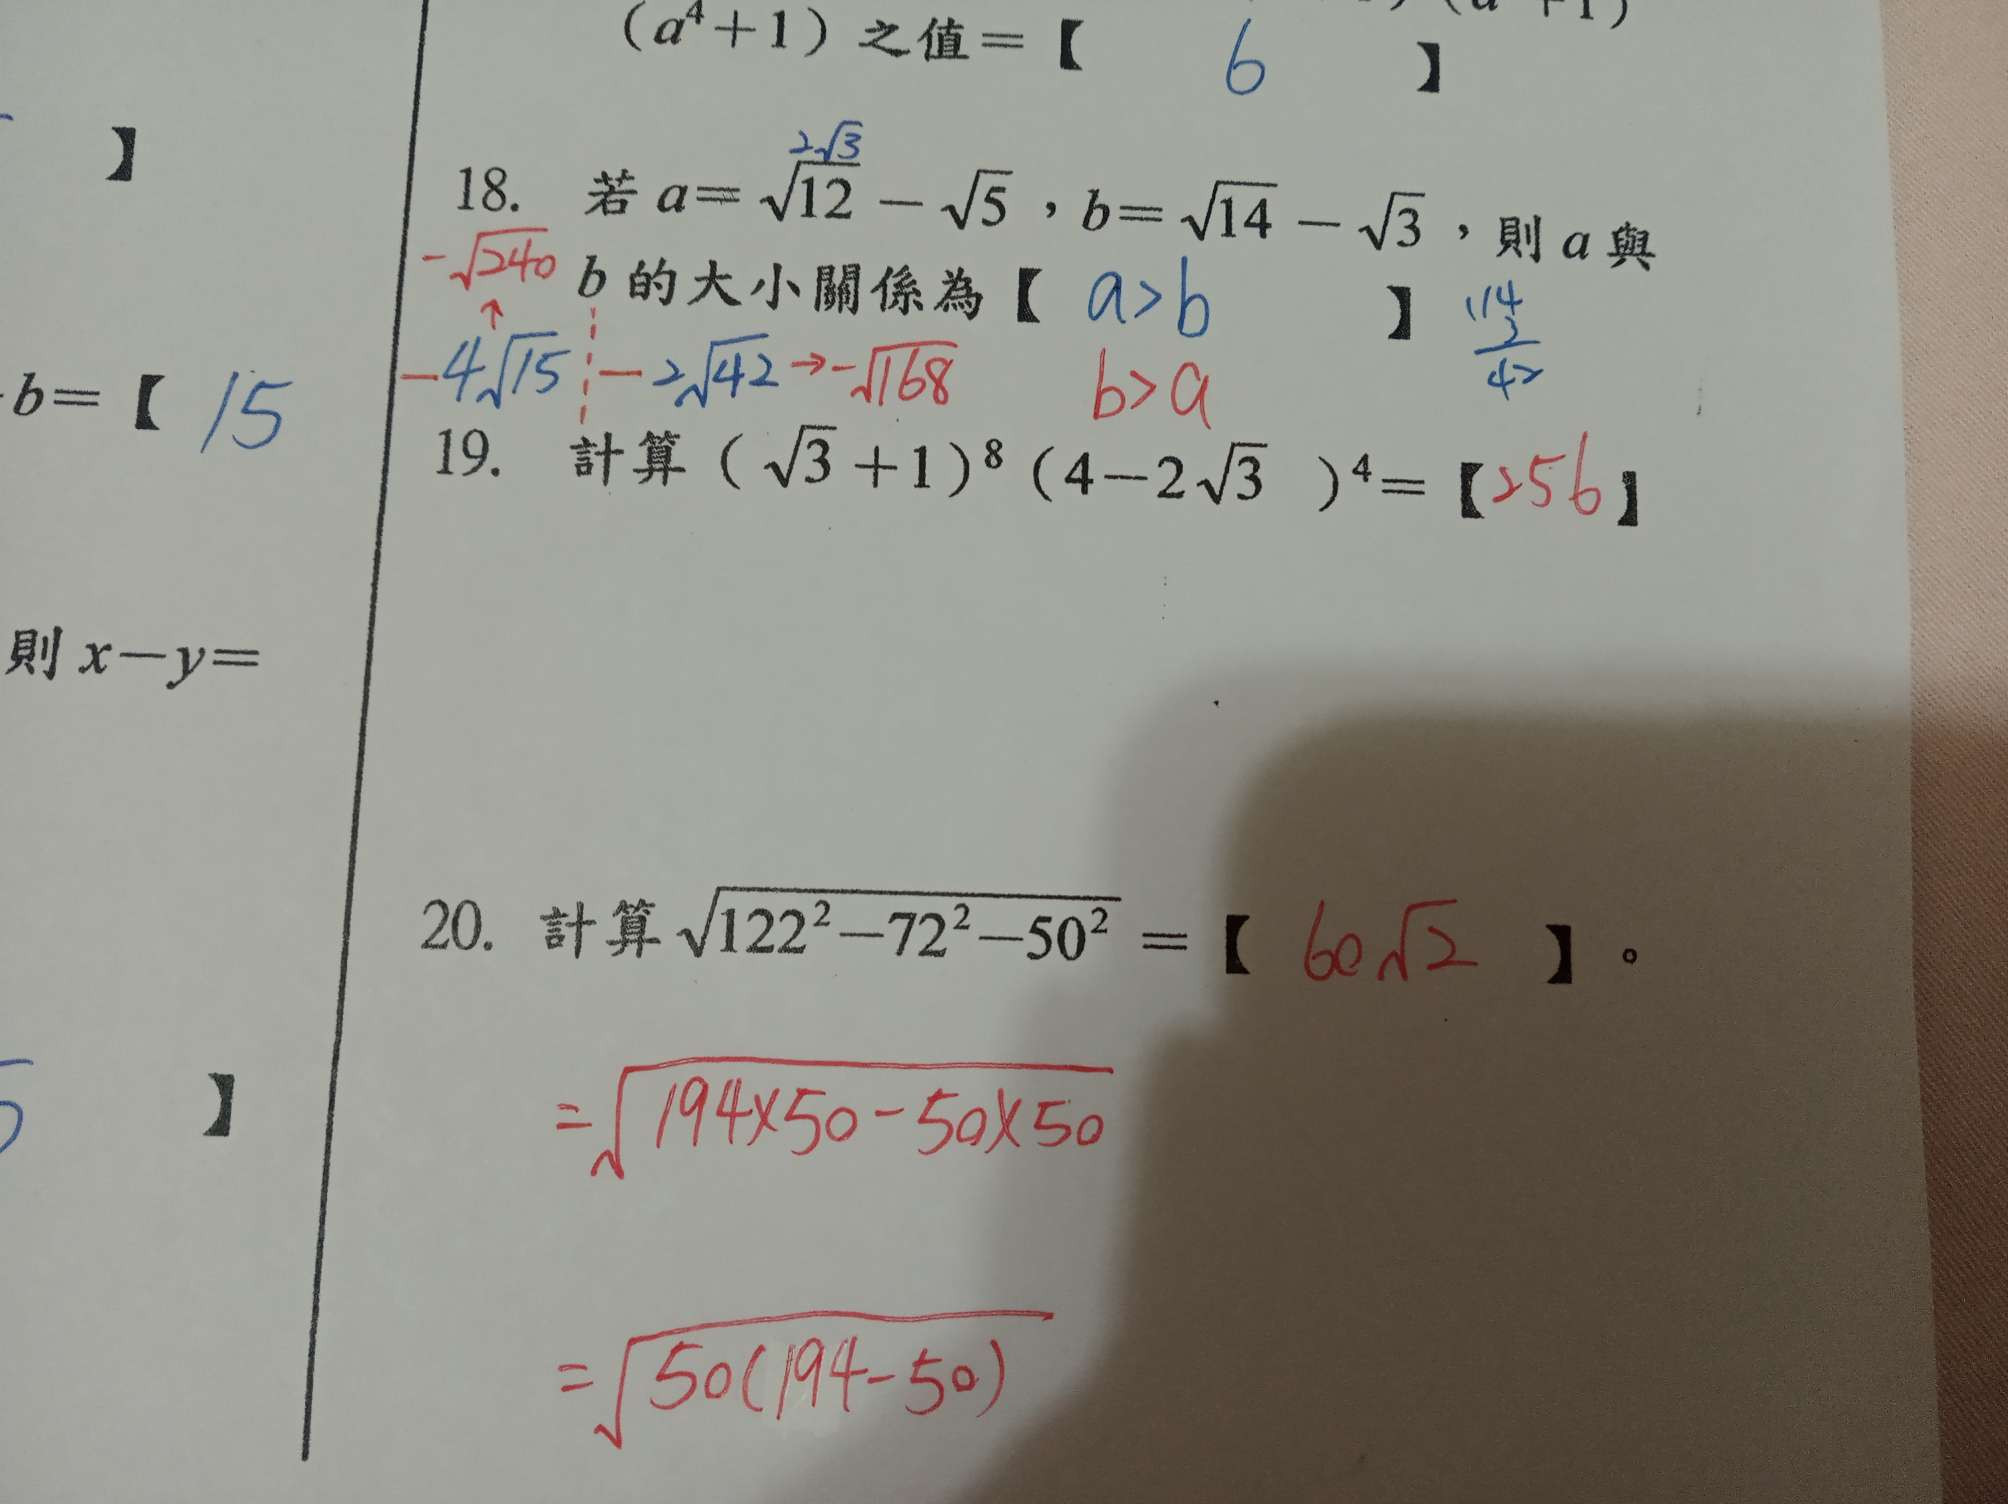 】
b=【 15
則 x−y=
5 】
(a⁴+1) 之值=【 6 】
2√3
18. 若 a= √12 − √5 , b= √14 − √3 , 則 a 與
-√240 b 的大小關係為【 a>b 】 14
↑ 3
-4√15 -2√42 → -√168 b>a 42
19. 計算 ( √3 +1)⁸ (4−2√3 )⁴=【256】
20. 計算 √122²−72²−50² =【 60√2 】。
=√194×50-50×50
=√50(194-50)